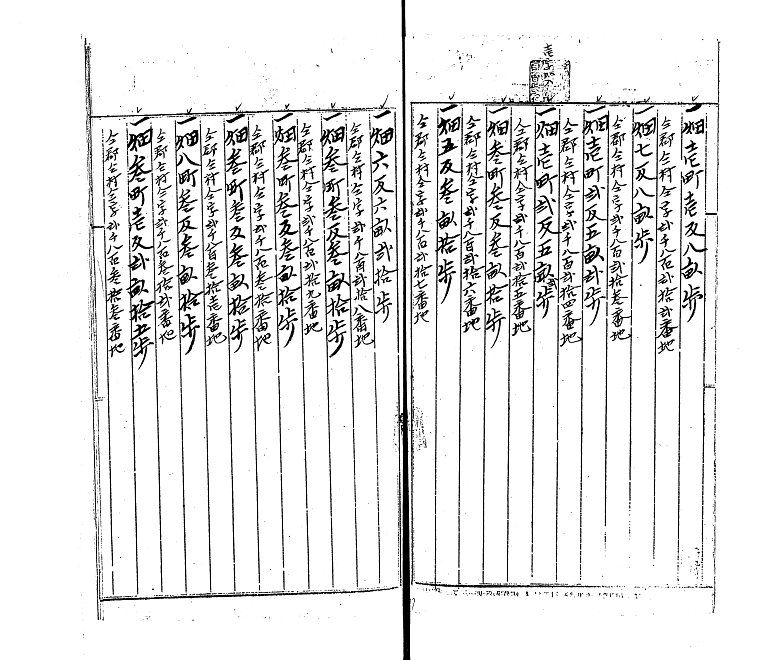 一畑壱町壱反八畝歩
仝郡仝村仝字弐千八百弐拾弐番地
一畑七反八畝歩
仝郡仝村仝字弐千八百弐拾叁番地
一畑壱町弐反五畝歩
仝郡仝村仝字弐千八百弐拾四番地
一畑壱町弐反五畝歩
仝郡仝村仝字弐千八百弐拾五番地
一畑叁町叁反叁畝拾歩
仝郡仝村仝字弐千八百弐拾六番地
一畑五反叁畝拾歩
仝郡仝村仝字弐千八百弐拾七番地
一畑六反六畝弐拾歩
仝郡仝村仝字弐千八百弐拾八番地
一畑叁町叁反叁畝拾歩
仝郡仝村仝字弐千八百弐拾九番地
一畑叁町叁反叁畝拾歩
仝郡仝村仝字弐千八百叁拾番地
一畑叁町叁反叁畝拾歩
仝郡仝村仝字弐千八百叁拾壱番地
一畑八町叁反叁畝拾歩
仝郡仝村仝字弐千八百叁拾弐番地
一畑叁町壱反弐畝拾五歩
仝郡仝村仝字弐千八百叁拾叁番地